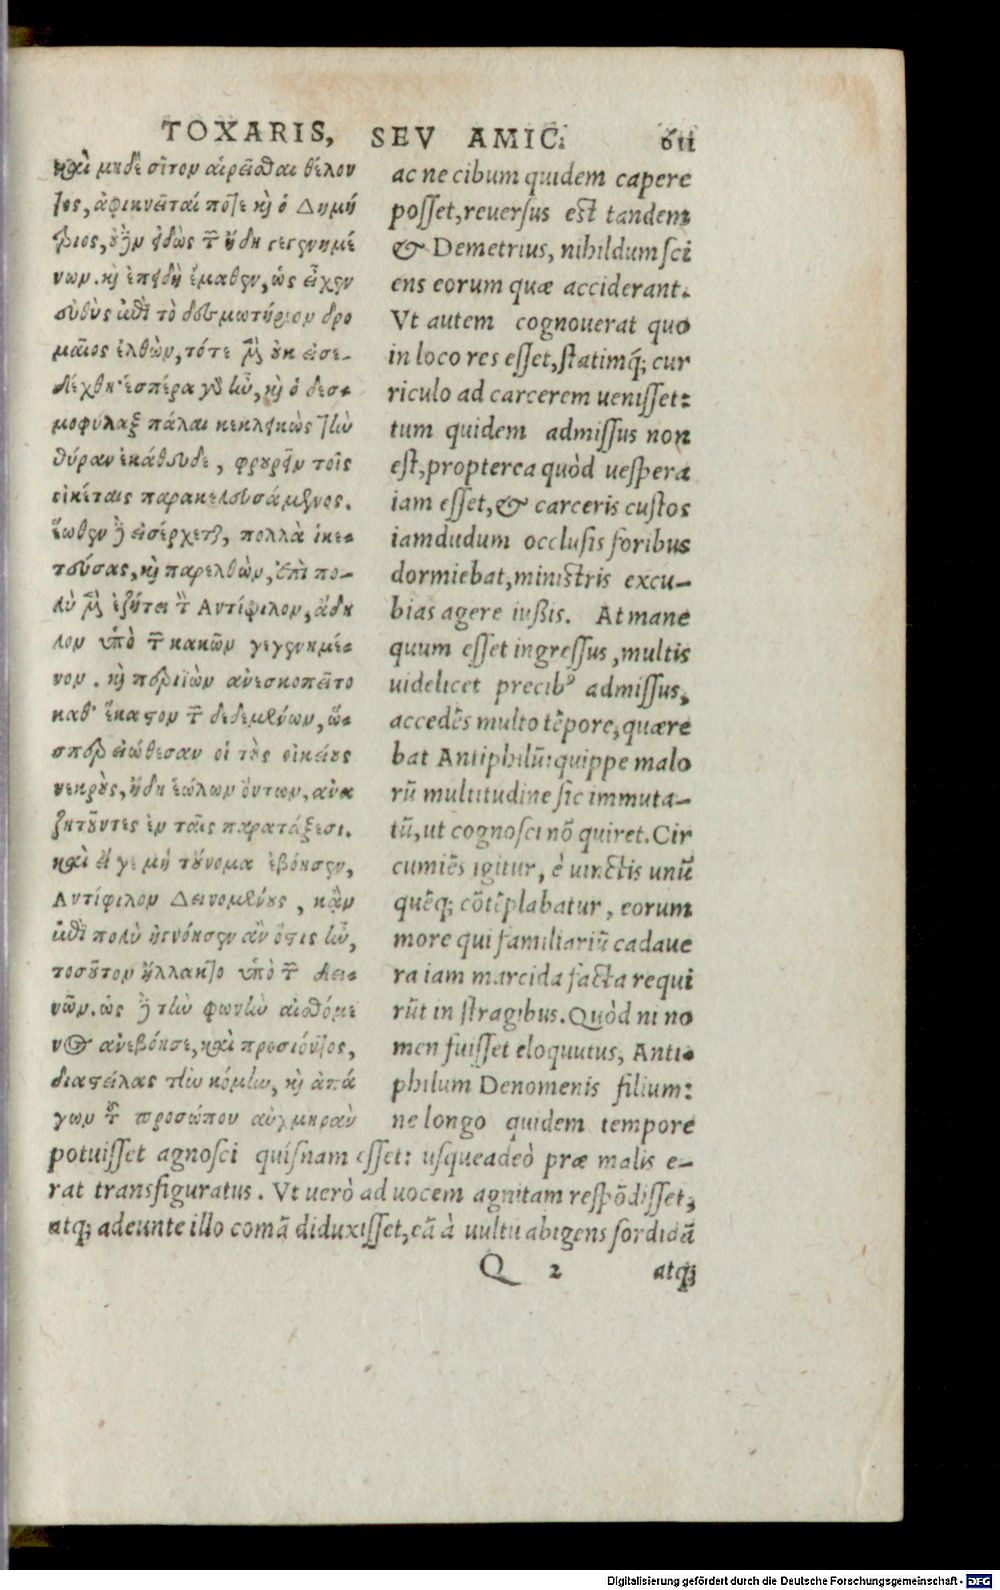 TOXARIS, SEV AMIC. 611
καὶ μηδὲ σῖτον αἱρεῖσθαι θέλον
τος, ἀφικνεῖταί ποτε κὴ ὁ Δημή
τριος, οὐδὲν εἰδὼς τῶν ἤδη γεγενημέ
νων. κὴ ἐπειδὴ ἔμαθεν, ὡς εἶχεν
εὐθὺς ἐπὶ τὸ δεσμωτήριον δρο
μαῖος ἐλθὼν, τότε μὲν οὐκ εἰσε-
δέχθη· ἑσπέρα γὸ ἦν, κὴ ὁ δεσ-
μοφύλαξ πάλαι κεκλεικὼς τὴν
θύραν ἐκάθευδε, φρουρεῖν τοῖς
οἰκέταις παρακελευσάμενος.
ἕωθεν δὲ εἰσέρχεται, πολλὰ ἱκε-
τεύσας, κὴ παρελθὼν, ἐπὶ πο-
λὺ μὲν ἐζήτει τὸν Αντίφιλον, ἄδη
λον ὑπὸ τῶν κακῶν γεγενημέ-
νον. κὴ περιϊὼν ἀνεσκοπεῖτο
καθ' ἕκαστον τῶν δεδεμένων, ὥ-
σπερ εἰώθεσαν οἱ τοὺς οἰκείους
νεκροὺς, ἤδη ἑώλων ὄντων, ἀνα
ζητοῦντες ἐν ταῖς παρατάξεσι.
καὶ εἴ γε μὴ τοὔνομα ἐβόησεν,
Αντίφιλον Δεινομένους, κἂν
ἐπὶ πολὺ ἠγνόησεν ἂν ὅστις ἦν,
τοσοῦτον ἤλλακτο ὑπὸ τῶν δει-
νῶν. ὡς δὲ τὴν φωνὴν αἰσθόμε
νος ἀνεβόησε, καὶ προσιόντος,
διαστείλας τὴν κόμην, κὴ ἀπά
γων τοῦ προσώπου αὐχμηρὰν
ac ne cibum quidem capere
posset, reuersus est tandem
& Demetrius, nihildum sci
ens eorum quæ acciderant.
Vt autem cognouerat quo
in loco res esset, statimq; cur
riculo ad carcerem uenisset:
tum quidem admissus non
est, propterea quòd uespera
iam esset, & carceris custos
iamdudum occlusis foribus
dormiebat, ministris excu-
bias agere iußis. At mane
quum esset ingressus, multis
uidelicet precib⁹ admissus,
accedẽs multo tẽpore, quære
bat Antiphilũ: quippe malo
rũ multitudine sic immuta-
tũ, ut cognosci nõ quiret. Cir
cumiẽs igitur, è uinctis unũ
quẽq; cõtẽplabatur, eorum
more qui familiariũ cadaue
ra iam marcida facta requi
rũt in stragibus. Quòd ni no
men fuisset eloquutus, Anti-
philum Denomenis filium:
ne longo quidem tempore
potuisset agnosci quisnam esset: usqueadeò præ malis e-
rat transfiguratus. Vt uerò ad uocem agnitam respõdisset,
atq; adeunte illo comã diduxisset, eã à uultu abigens sordidã
Q 2 atq;
Digitalisierung gefördert durch die Deutsche Forschungsgemeinschaft - DFG